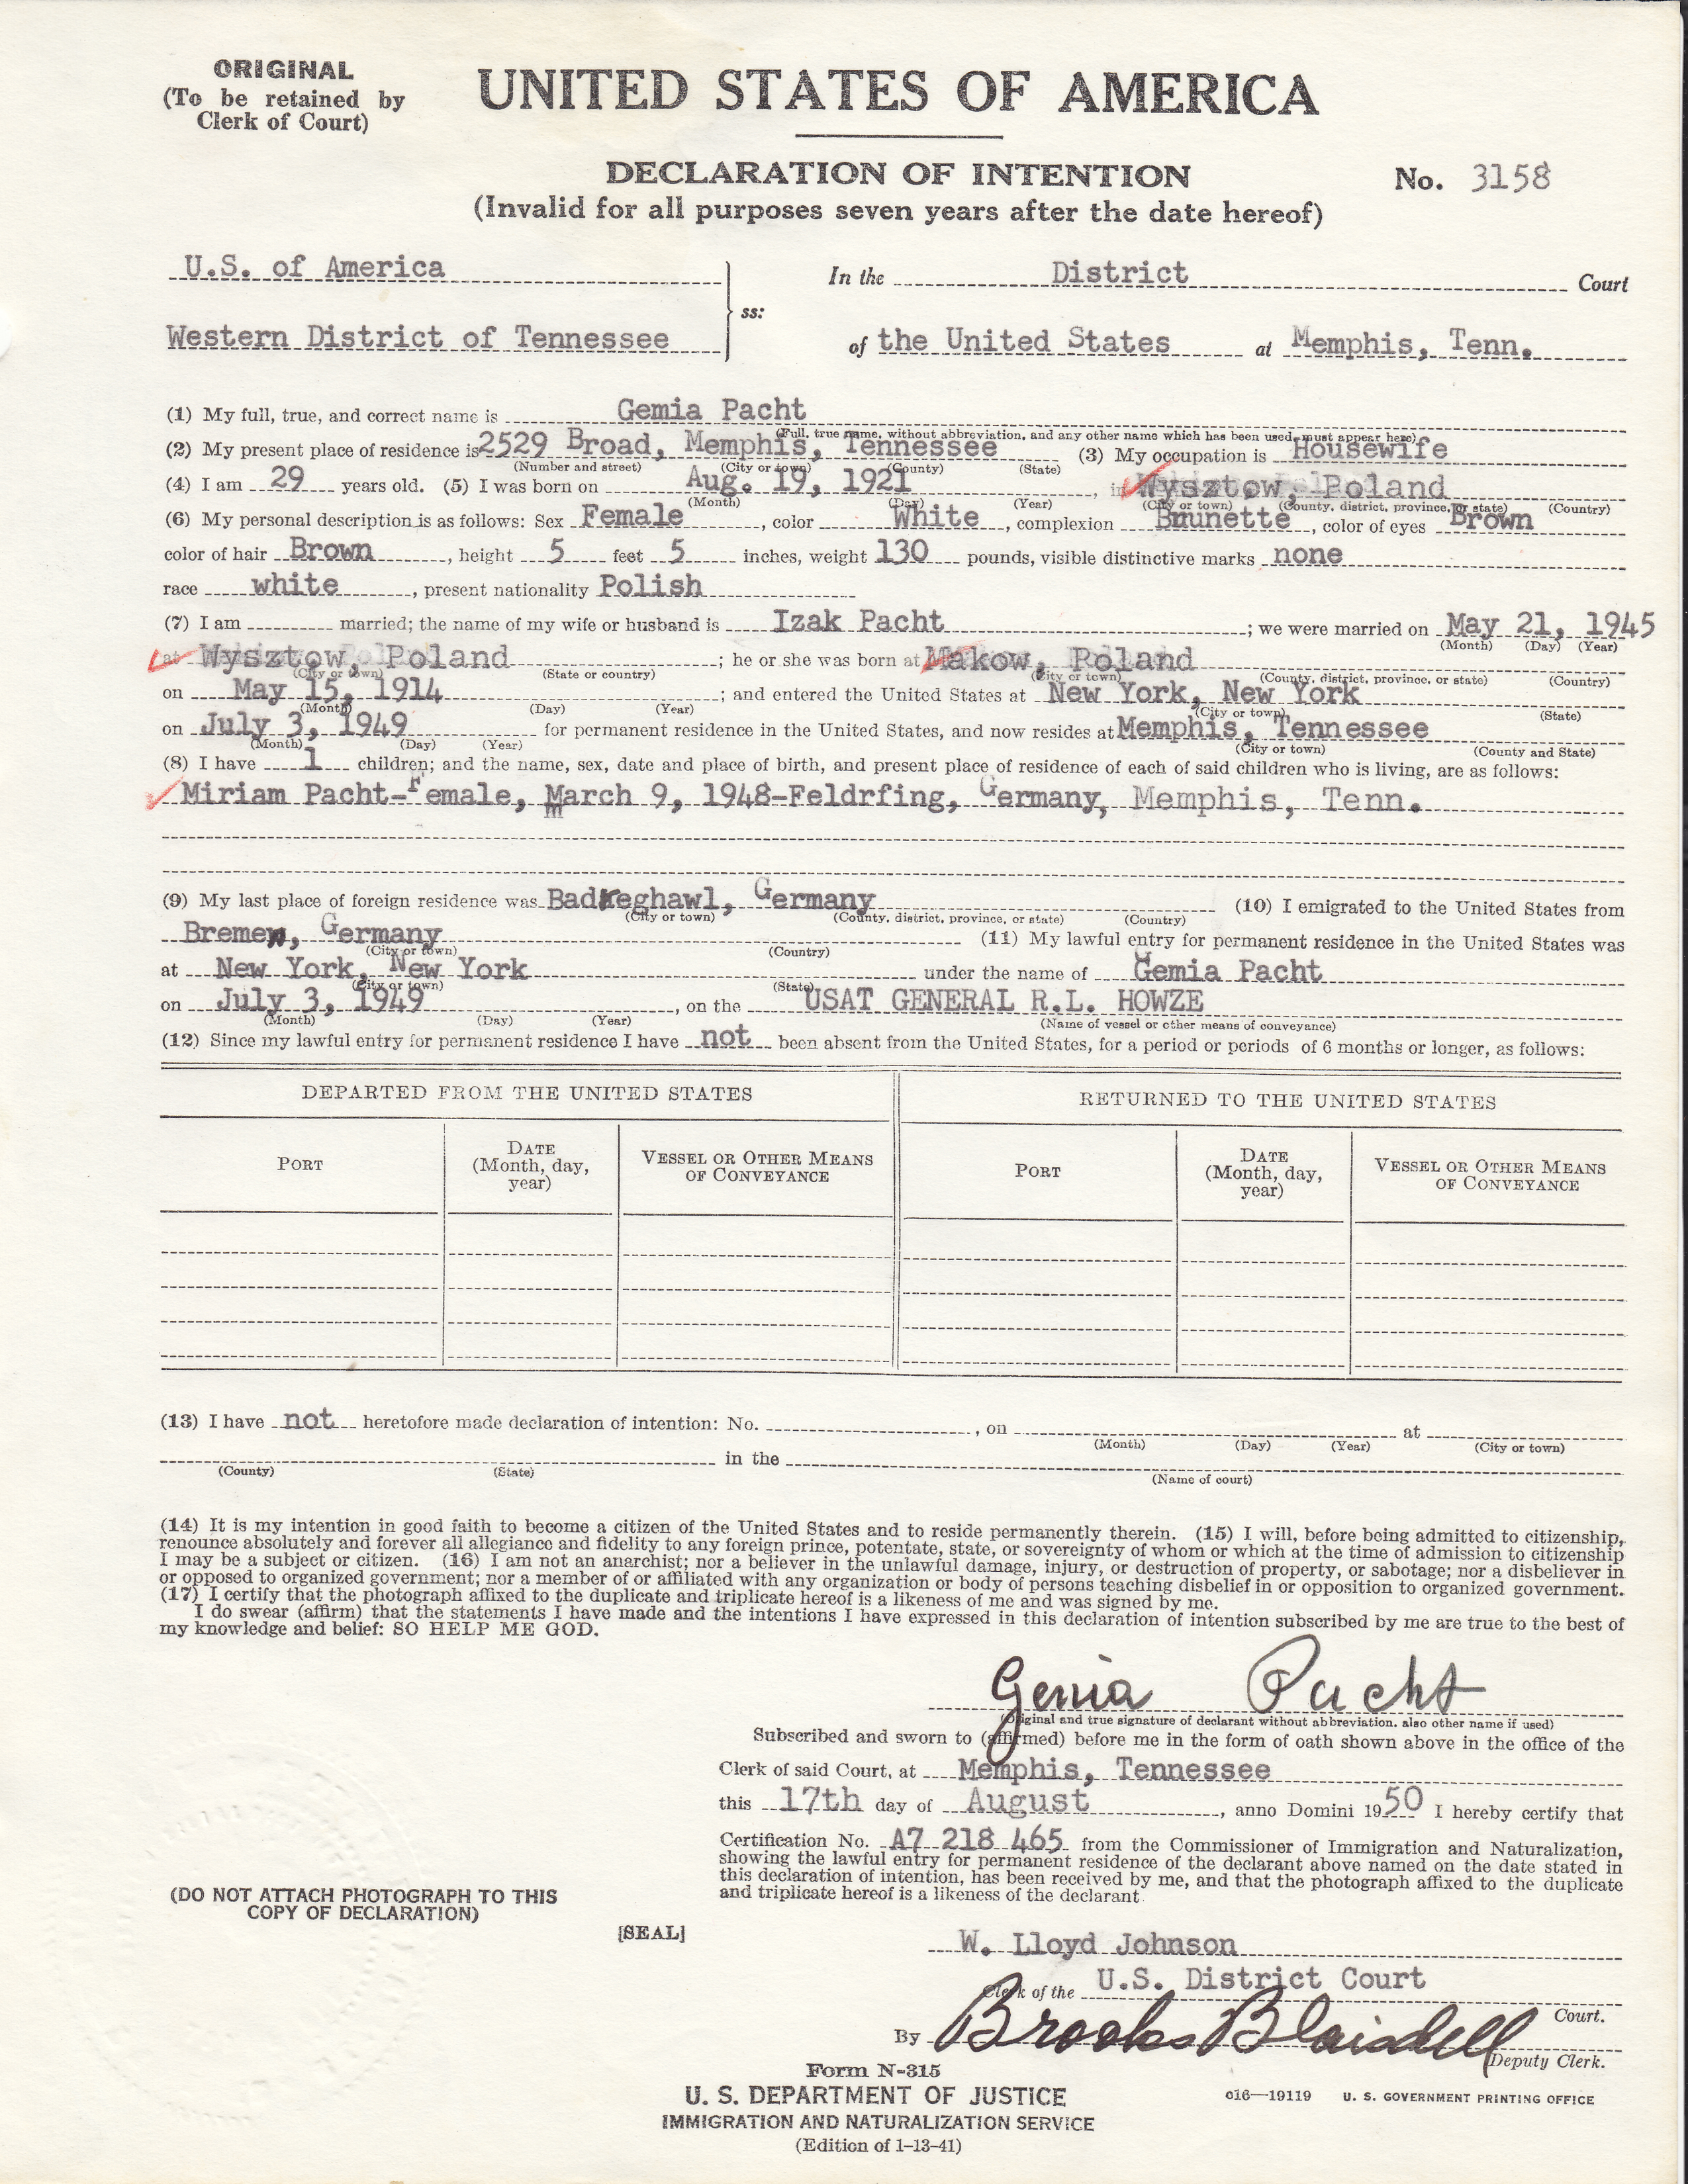 ORIGINAL
(To be retained by
Clerk of Court)
UNITED STATES OF AMERICA
DECLARATION OF INTENTION
No. 3158
(Invalid for all purposes seven years after the date hereof)
U.S. of America
In the District Court
ss:
Western District of Tennessee
of the United States at Memphis, Tenn.
(1) My full, true, and correct name is Gemia Pacht
(Full, true name, without abbreviation, and any other name which has been used, must appear here)
(2) My present place of residence is 2529 Broad, Memphis, Tennessee (3) My occupation is Housewife
(Number and street) (City or town) (County) (State)
(4) I am 29 years old. (5) I was born on Aug. 19, 1921, in Wysztow, Poland
(Month) (Day) (Year) (City or town) (County, district, province, or state) (Country)
(6) My personal description is as follows: Sex Female, color White, complexion Brunette, color of eyes Brown
color of hair Brown, height 5 feet 5 inches, weight 130 pounds, visible distinctive marks none
race white, present nationality Polish
(7) I am married; the name of my wife or husband is Izak Pacht; we were married on May 21, 1945
(Month) (Day) (Year)
at Wysztow, Poland; he or she was born at Makow, Poland
(City or town) (State or country) (City or town) (County, district, province, or state) (Country)
on May 15, 1914; and entered the United States at New York, New York
(Month) (Day) (Year) (City or town) (State)
on July 3, 1949 for permanent residence in the United States, and now resides at Memphis, Tennessee
(Month) (Day) (Year) (City or town) (County and State)
(8) I have 1 children; and the name, sex, date and place of birth, and present place of residence of each of said children who is living, are as follows:
Miriam Pacht-Female, March 9, 1948-Feldrfing, Germany, Memphis, Tenn.
(9) My last place of foreign residence was Badreghawl, Germany (10) I emigrated to the United States from
(City or town) (County, district, province, or state) (Country)
Bremen, Germany (11) My lawful entry for permanent residence in the United States was
(City or town) (Country)
at New York, New York under the name of Gemia Pacht
(City or town) (State)
on July 3, 1949, on the USAT GENERAL R.L. HOWZE
(Month) (Day) (Year) (Name of vessel or other means of conveyance)
(12) Since my lawful entry for permanent residence I have not been absent from the United States, for a period or periods of 6 months or longer, as follows:
DEPARTED FROM THE UNITED STATES RETURNED TO THE UNITED STATES
PORT DATE (Month, day, year) VESSEL OR OTHER MEANS OF CONVEYANCE PORT DATE (Month, day, year) VESSEL OR OTHER MEANS OF CONVEYANCE
(13) I have not heretofore made declaration of intention: No. , on at
(Month) (Day) (Year) (City or town)
in the
(County) (State) (Name of court)
(14) It is my intention in good faith to become a citizen of the United States and to reside permanently therein. (15) I will, before being admitted to citizenship,
renounce absolutely and forever all allegiance and fidelity to any foreign prince, potentate, state, or sovereignty of whom or which at the time of admission to citizenship
I may be a subject or citizen. (16) I am not an anarchist; nor a believer in the unlawful damage, injury, or destruction of property, or sabotage; nor a disbeliever in
or opposed to organized government; nor a member of or affiliated with any organization or body of persons teaching disbelief in or opposition to organized government.
(17) I certify that the photograph affixed to the duplicate and triplicate hereof is a likeness of me and was signed by me.
I do swear (affirm) that the statements I have made and the intentions I have expressed in this declaration of intention subscribed by me are true to the best of
my knowledge and belief: SO HELP ME GOD.
Genia Pacht
(Original and true signature of declarant without abbreviation, also other name if used)
Subscribed and sworn to (affirmed) before me in the form of oath shown above in the office of the
Clerk of said Court, at Memphis, Tennessee
this 17th day of August, anno Domini 1950 I hereby certify that
Certification No. A7 218 465 from the Commissioner of Immigration and Naturalization,
showing the lawful entry for permanent residence of the declarant above named on the date stated in
this declaration of intention, has been received by me, and that the photograph affixed to the duplicate
and triplicate hereof is a likeness of the declarant
(DO NOT ATTACH PHOTOGRAPH TO THIS
COPY OF DECLARATION)
[SEAL]
W. Lloyd Johnson
Clerk of the U.S. District Court
Court.
By Brooks Blaisdell
Deputy Clerk.
Form N-315
U. S. DEPARTMENT OF JUSTICE
IMMIGRATION AND NATURALIZATION SERVICE
(Edition of 1-13-41)
o16—19119 U. S. GOVERNMENT PRINTING OFFICE